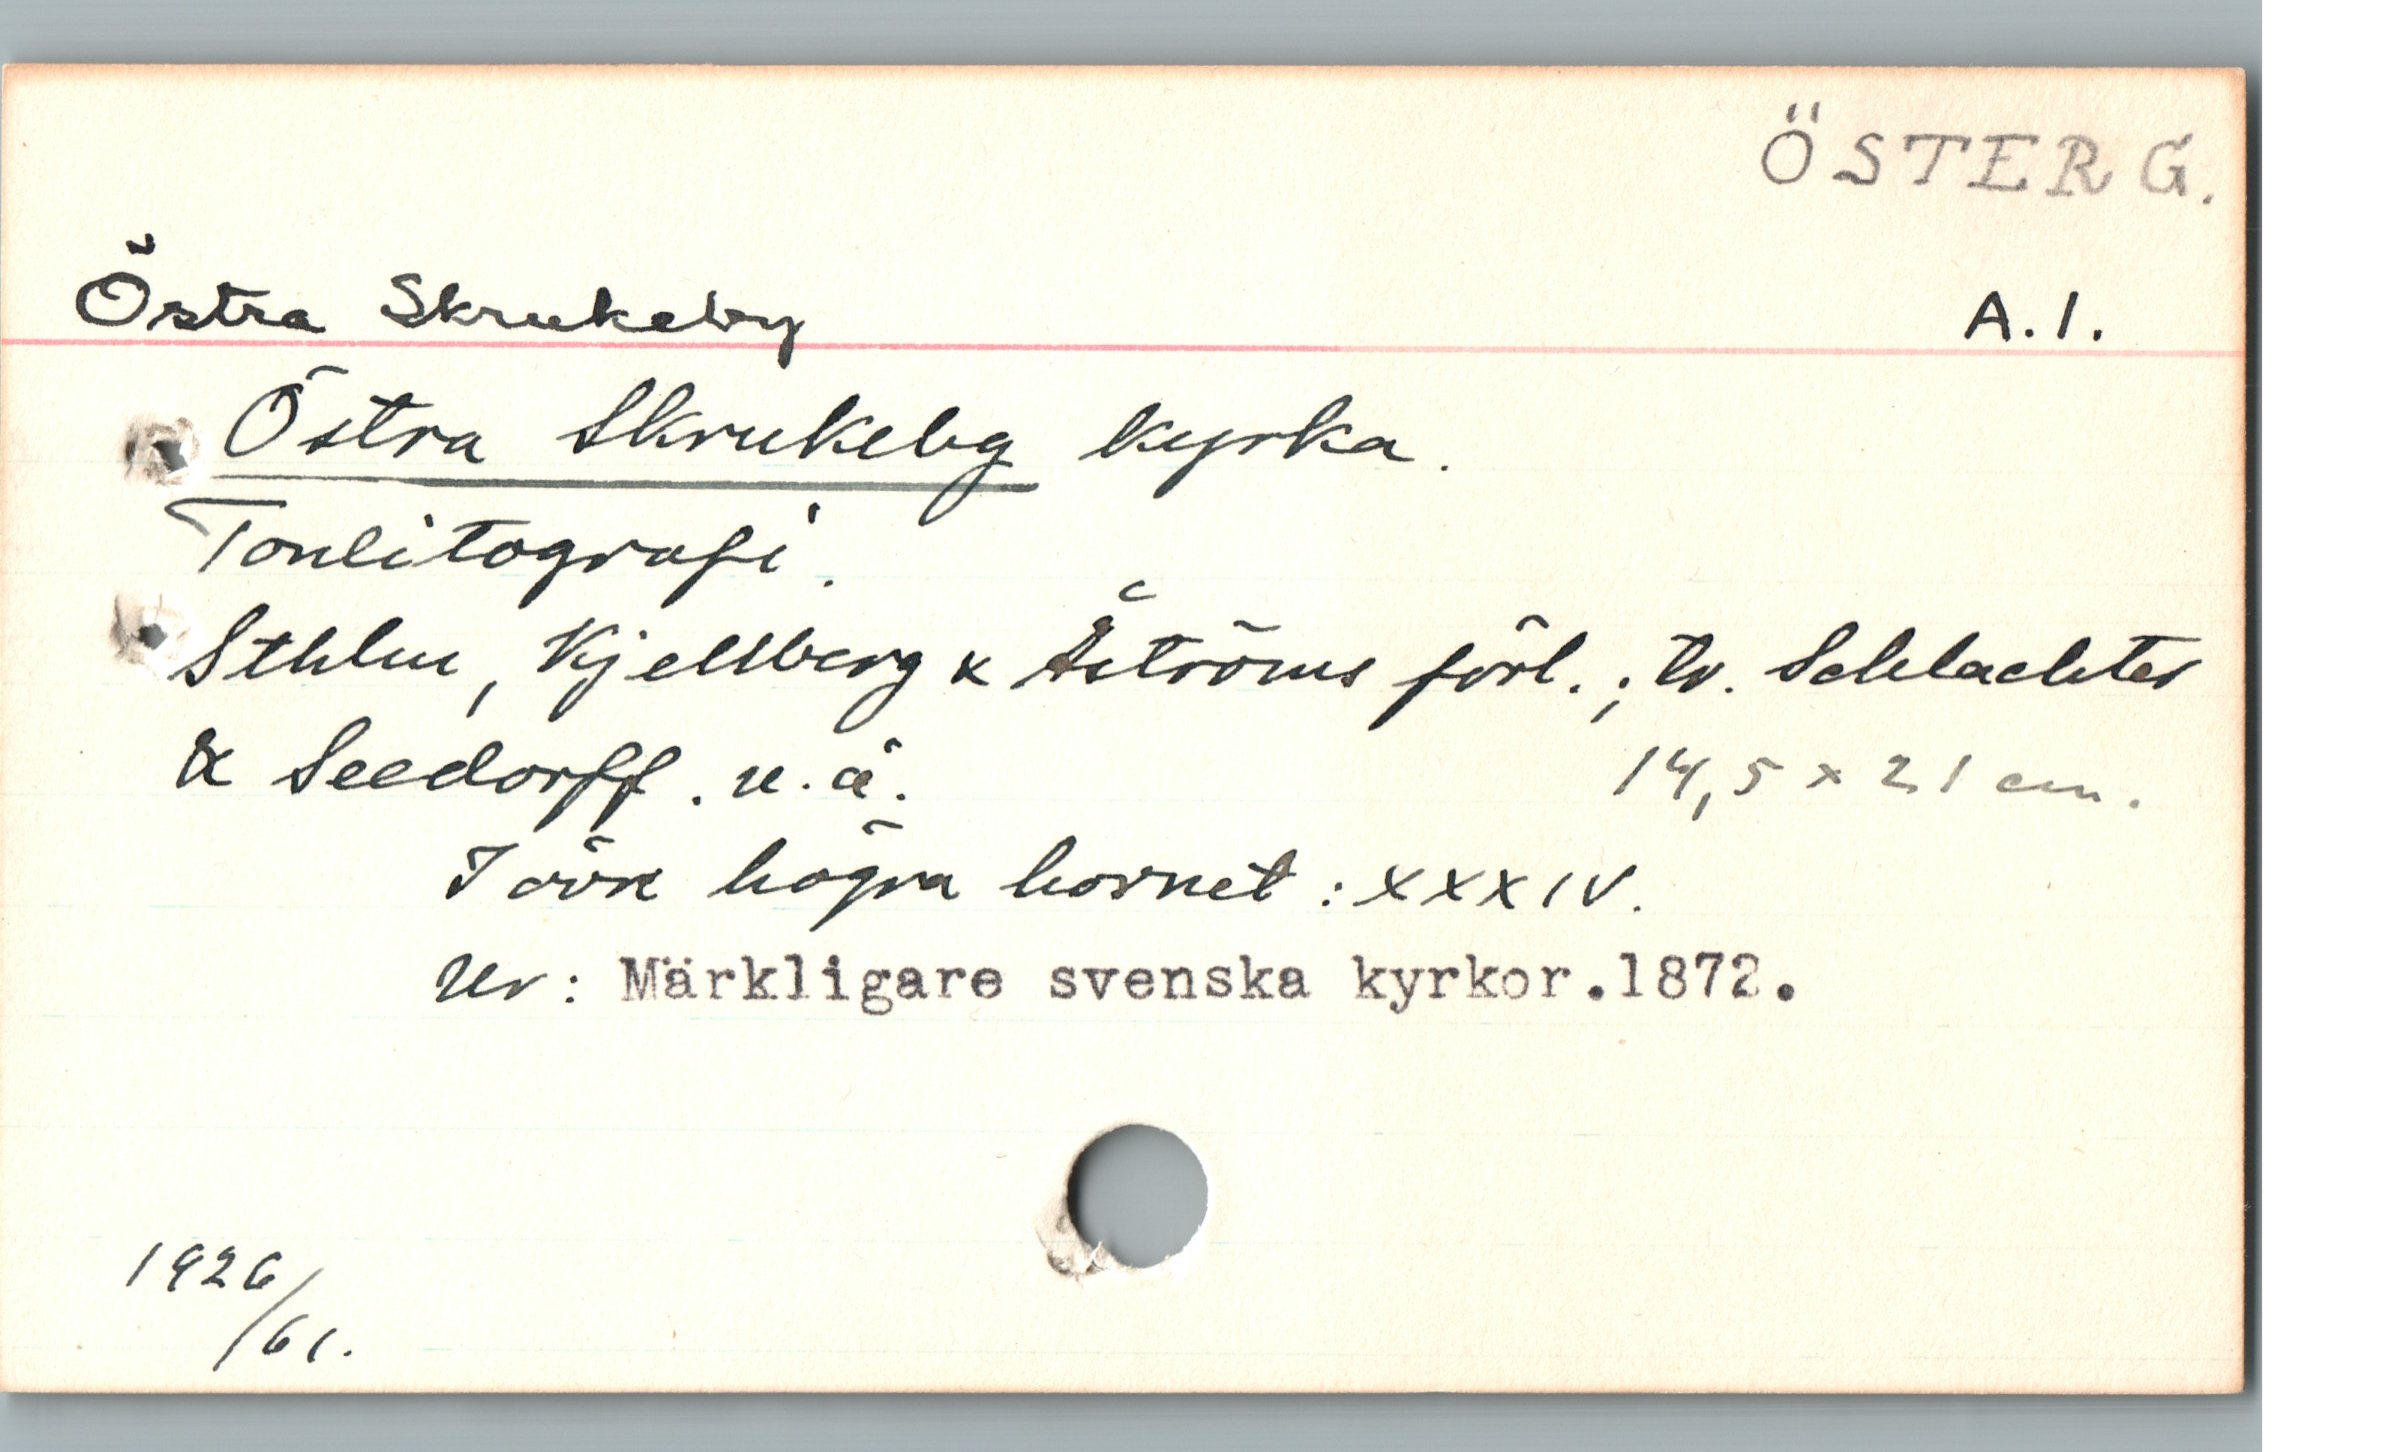 ÖSTERG.
Östra Skrukeby A.1.
Östra Skrukeby kyrka.
Tonlitografi.
Sthlm, Kjellberg & Åströms förl.; tr. Schlachter
& Seedorff. u.å. 14,5 x 21 cm.
I övre högra hörnet: XXXIV.
Ur: Märkligare svenska kyrkor.1872.
1926/61.